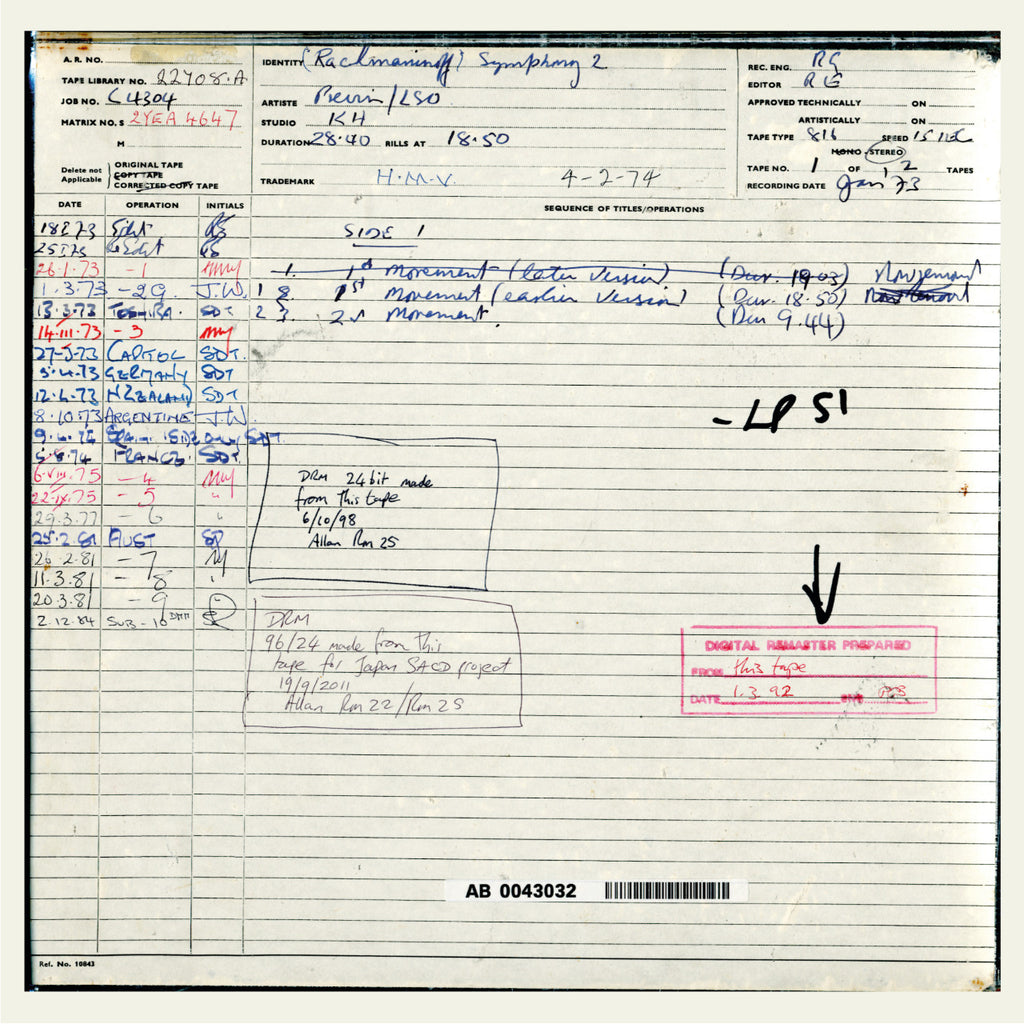 A. R. NO.
TAPE LIBRARY NO. 22408.A
JOB NO. C4304
MATRIX NO. S 2YEA 4647
M
Delete not Applicable
ORIGINAL TAPE
COPY TAPE
CORRECTED COPY TAPE
IDENTITY (Rachmaninoff) Symphony 2
ARTISTE Previn/LSO
STUDIO KH
DURATION 28.40 RILLS AT 18.50
TRADEMARK H.M.V. 4-2-74
REC. ENG. RG
EDITOR RG
APPROVED TECHNICALLY ON
ARTISTICALLY ON
TAPE TYPE 816 SPEED 15
MONO STEREO
TAPE NO. 1 OF 2 TAPES
RECORDING DATE Jan 73
DATE OPERATION INITIALS
SEQUENCE OF TITLES/OPERATIONS
Edit
SIDE 1
Edit
26.1.73 -1
1. 1st Movement (later version) (Dur. 19.03)
1.3.73 -2G. J.W.
1 2 1st Movement (earlier version) (Dur. 18.50)
13.3.73 TOSHIBA SDT
2 3 2nd Movement. (Dur 9.44)
14.III.73 -3
27-3-73 CAPITOL SDT.
3.4.73 GERMANY SDT
12.4.73 N ZEALAND SDT
8.10.73 ARGENTINE J.W.
SDT
5.8.74 FRANCE. SDT.
6.VIII.75 -4
22.IX.75 -5 "
29.3.77 -6
25.2.81 AUST
26.2.81 -7
11.3.81 -8
20.3.81 -9
2.12.84 SUB-10 DMM
-LP S1
DRM 24bit made
from this tape
6/10/98
Allan Rm 25
DRM
96/24 made from this
tape for Japan SACD project
19/9/2011
Allan Rm 22/Rm 25
DIGITAL REMASTER PREPARED
FROM this tape
DATE 1.3.92 ENG
AB 0043032
Ref. No. 10843